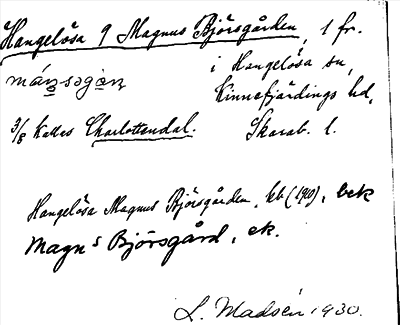 Hangelösa 9 Magnus Björsgården, 1 fr.
i Hangelösa sn,
månsagän
Kinnefjärdings hd,
3/8 kallas Charlottendal.
Skarab. l.
Hangelösa Magnus Björsgården, kb (1910), bek
Magns Björsgård, ek.
L. Madsén 1930.